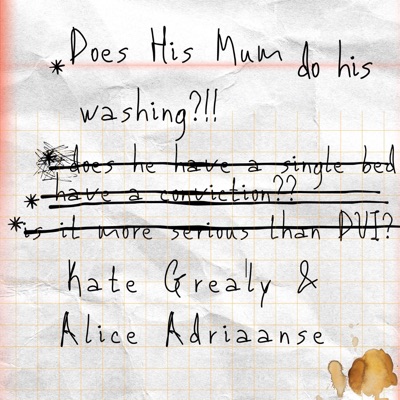 * Does His Mum do his
washing?!!
* does he have a single bed
* have a conviction??
* is it more serious than DVI?
Kate Grealy &
Alice Adriaanse